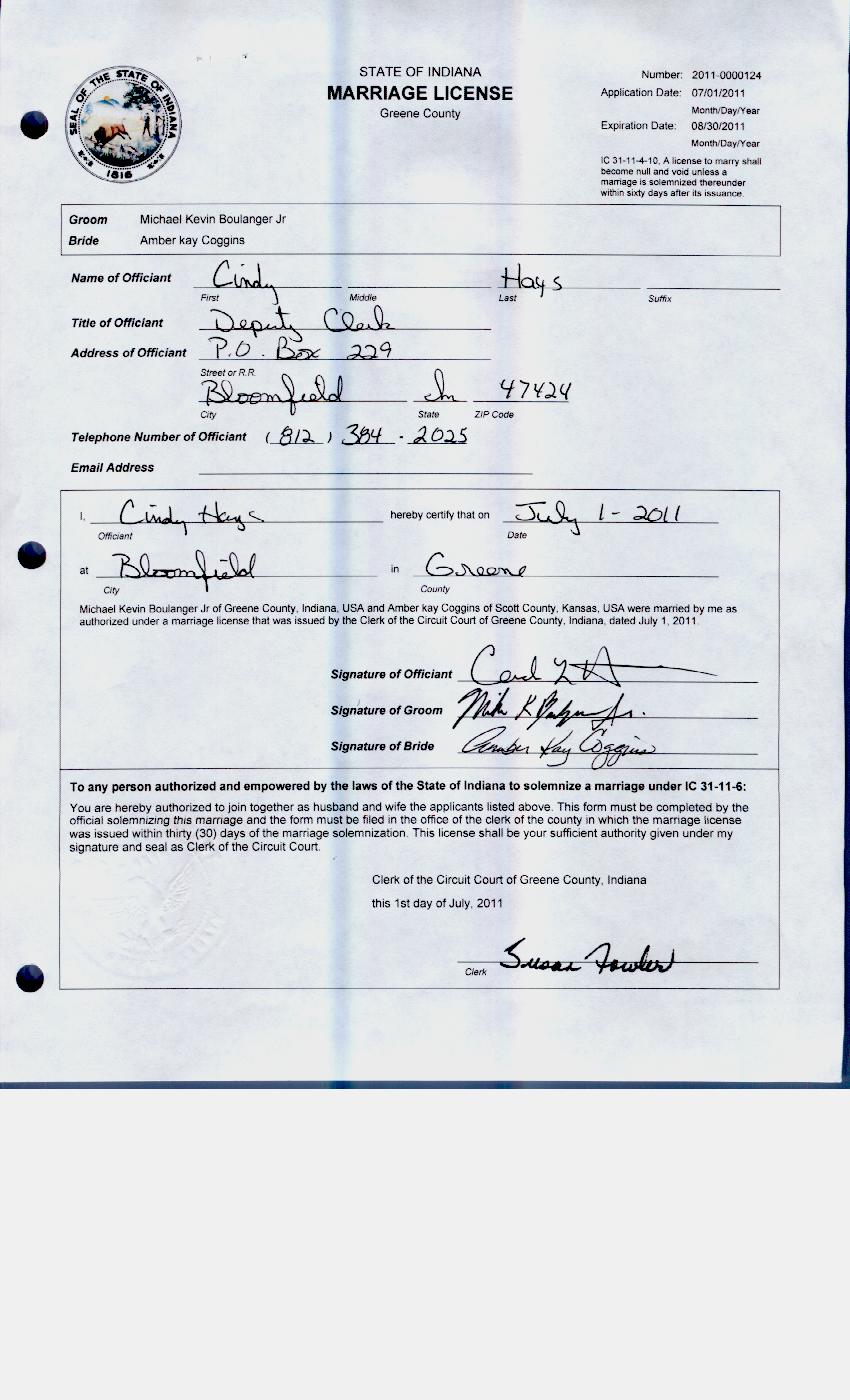 STATE OF INDIANA
MARRIAGE LICENSE
Greene County
Number: 2011-0000124
Application Date: 07/01/2011
Month/Day/Year
Expiration Date: 08/30/2011
Month/Day/Year
IC 31-11-4-10, A license to marry shall
become null and void unless a
marriage is solemnized thereunder
within sixty days after its issuance.
SEAL OF THE STATE OF INDIANA
1816
Groom Michael Kevin Boulanger Jr
Bride Amber kay Coggins
Name of Officiant Cindy Hays
First Middle Last Suffix
Title of Officiant Deputy Clerk
Address of Officiant P.O. Box 229
Street or R.R.
Bloomfield In 47424
City State ZIP Code
Telephone Number of Officiant (812) 384-2025
Email Address
I, Cindy Hays hereby certify that on July 1-2011
Officiant Date
at Bloomfield in Greene
City County
Michael Kevin Boulanger Jr of Greene County, Indiana, USA and Amber kay Coggins of Scott County, Kansas, USA were married by me as
authorized under a marriage license that was issued by the Clerk of the Circuit Court of Greene County, Indiana, dated July 1, 2011.
Signature of Officiant
Signature of Groom
Signature of Bride Amber Kay Coggins
To any person authorized and empowered by the laws of the State of Indiana to solemnize a marriage under IC 31-11-6:
You are hereby authorized to join together as husband and wife the applicants listed above. This form must be completed by the
official solemnizing this marriage and the form must be filed in the office of the clerk of the county in which the marriage license
was issued within thirty (30) days of the marriage solemnization. This license shall be your sufficient authority given under my
signature and seal as Clerk of the Circuit Court.
Clerk of the Circuit Court of Greene County, Indiana
this 1st day of July, 2011
Susan Fowler
Clerk